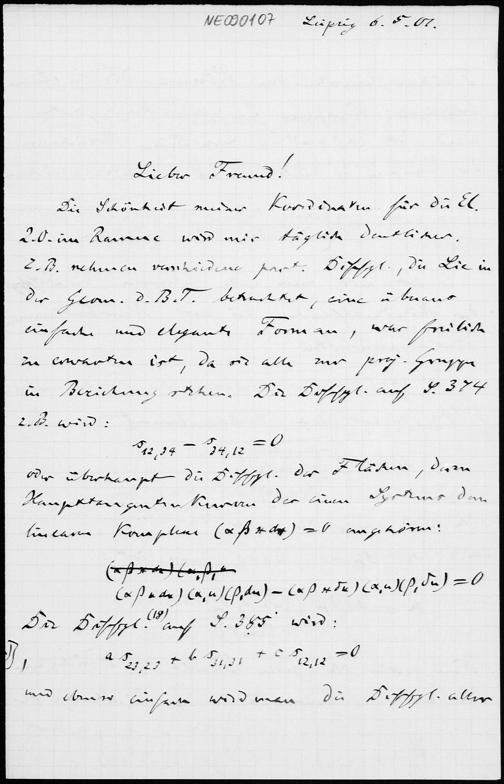 NE090107
Leipzig 6. 5. 01.
Lieber Freund!
Die Schönheit meiner Koordinaten für die El.
2. O. im Raume wird mir täglich deutlicher.
Z.B. nehmen verschiedene part. Diffgl., die Lie in
der Geom. d. B.T. betrachtet, eine überaus
einfache und elegante Form an, was freilich
zu erwarten ist, da sie alle zur proj. Gruppe
in Beziehung stehen. Die Diffgl. auf S. 374
z.B. wird:
s12,34 − s34,12 = 0
oder überhaupt die Diffgl. der Flächen, deren
Haupttangentenkurven des einen Systems dem
linearen Komplex = 0 angehören:
= 0
Die Diffgl. (18) auf S. 385 wird:
a s23,23 + b s31,31 + c s12,12 = 0
und ebenso einfach wird man die Diffgl. aller